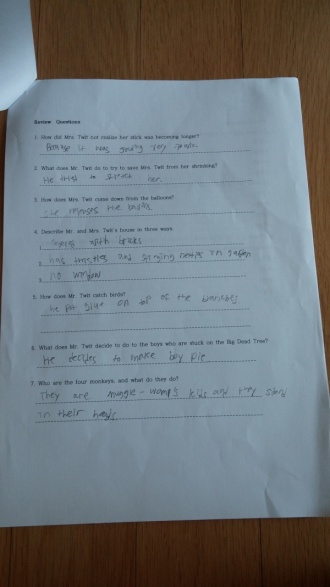 Review Questions
1. How did Mrs. Twit not realize her stick was becoming longer?
Because it was going very
2. What does Mr. Twit do to try to save Mrs. Twit from her shrinking?
He tries to her.
3. How does Mrs. Twit come down from the balloons?
releases the
4. Describe Mr. and Mrs. Twit's house in three ways
1. with bricks
2. has thistles and stinging nettles in
3. no window
5. How does Mr. Twit catch birds?
he put glue on top of the branches
6. What does Mr. Twit decide to do to the boys who are stuck on the Big Dead Tree?
He decides to make boy pie
7. Who are the four monkeys, and what do they do?
They are muggle-wump's kids and they stand
in their heads